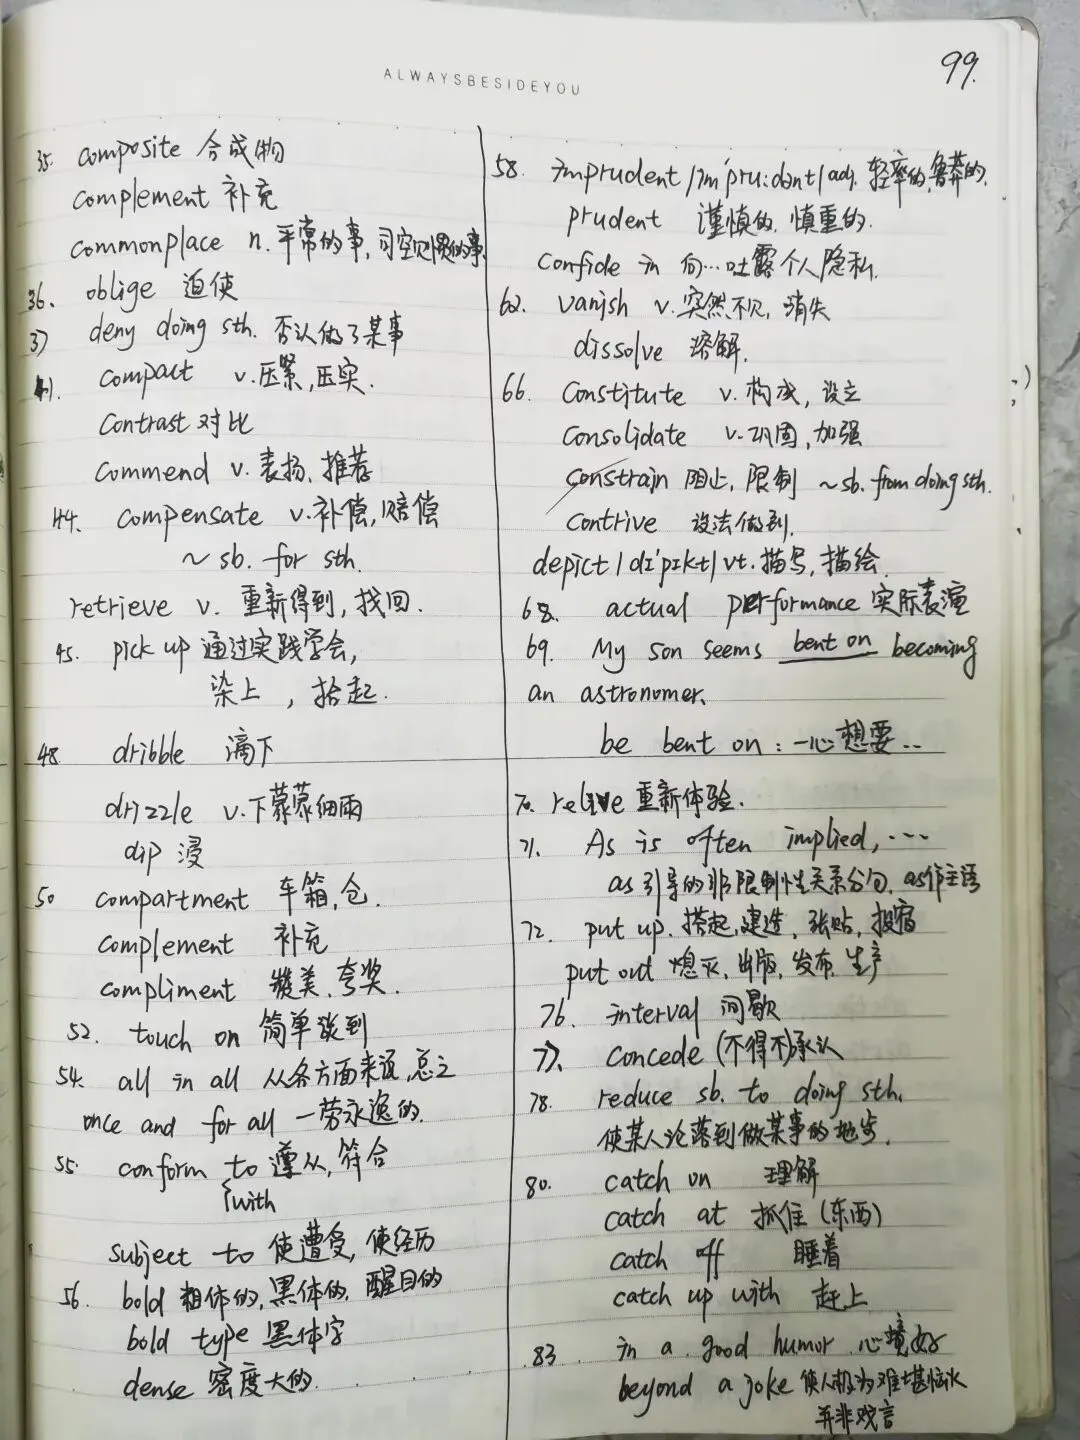 ALWAYSBESIDEYOU
99.
35. composite 合成物
complement 补充
commonplace n.平常的事,司空见惯的事.
36. oblige 迫使
37 deny doing sth. 否认做了某事
41. compact v.压紧,压实.
contrast 对比
commend v.表扬,推荐
44. compensate v.补偿,赔偿
~ sb. for sth.
retrieve v. 重新得到,找回.
45. pick up 通过实践学会,
染上,拾起.
48. dribble 滴下
drizzle v.下蒙蒙细雨
dip 浸
50 compartment 车箱,仓.
complement 补充
compliment 赞美,夸奖.
52. touch on 简单谈到
54. all in all 从各方面来说,总之
once and for all 一劳永逸的.
55. conform to 遵从,符合
with
subject to 使遭受,使经历
56. bold 粗体的,黑体的,醒目的
bold type 黑体字
dense 密度大的.
58. imprudent /ɪm'pru:dənt/ adj. 轻率的,鲁莽的.
prudent 谨慎的,慎重的.
confide in 向…吐露个人隐私.
62. vanish v.突然不见,消失
dissolve 溶解.
66. constitute v.构成,设立
consolidate v.巩固,加强
constrain 阻止,限制 ~sb. from doing sth.
contrive 设法做到.
depict /dɪ'pɪkt/ vt.描写,描绘.
68. actual performance 实际表演
69. My son seems bent on becoming
an astronomer.
be bent on: 一心想要..
70. relive 重新体验.
71. As is often implied, ...
as引导的非限制性关系分句, as作主语
72. put up. 搭起,建造,张贴,投宿
put out 熄灭,出版,发布,生产
76. interval 间歇
77. concede (不得不)承认
78. reduce sb. to doing sth.
使某人沦落到做某事的地步.
80. catch on 理解
catch at 抓住(东西)
catch off 睡着
catch up with 赶上
83 in a good humor 心境好
beyond a joke 使人极为难堪恼火
并非戏言